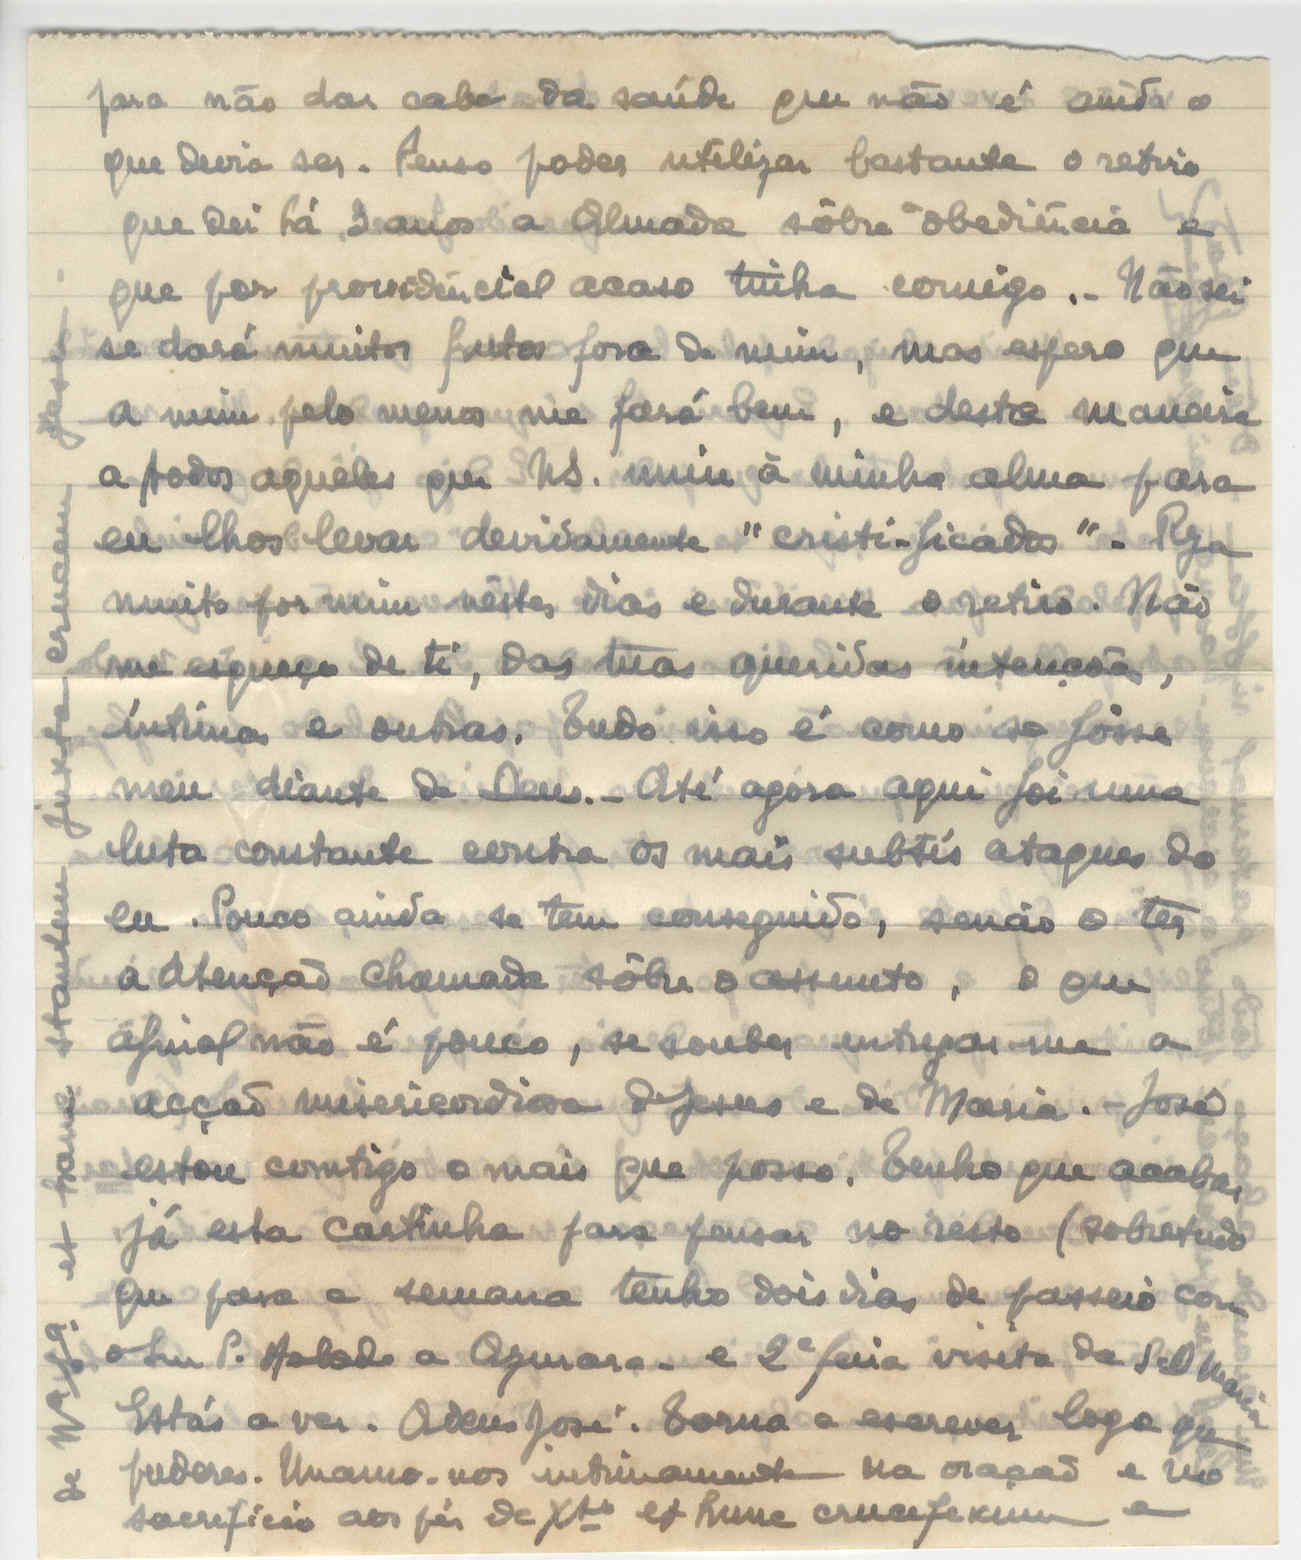 para não dar cabo da saúde que não é ainda o
que devia ser. Penso poder utilizar bastante o retiro
que dei há 2 anos a Almada sôbre obediência e
que por providêncial acaso tinha comigo. - Não sei
se dará muitos frutos fora de mim, mas espero que
a mim pelo menos me fará bem, e desta maneira
a todos aquêles que NS. à minha alma para
eu lhos levar devidamente "cristi-ficados". - Reza
muito por mim nêstes dias e durante o retiro. Não
me esqueço de ti, das tuas queridas intenções,
íntimas e outras. Tudo isso é como se fôsse
meu diante de Deus. - Até agora aqui foi uma
luta constante contra os mais subtís ataques do
eu. Pouco ainda se tem conseguido, senão o ter
a atenção chamada sôbre o assunto, o que
afinal não é pouco, se souber entregar-me a
acção misericordiosa de Jesus e de Maria. - José
estou comtigo o mais que posso. Tenho que acabar
já esta cartinha para pensar no resto (sobretudo
que para a semana tenho dois dias de passeio com
o Snr P. a Azurara - e 2ª feira visita da
Estás a ver. Adeus José. Torna a escrever logo que
puderes. Unamo-nos intimamente na oração e no
sacrifício aos pés de Xto et hunc crucifixum e
de Nª Sª. et hanc stantem juxta crucem Jesu -